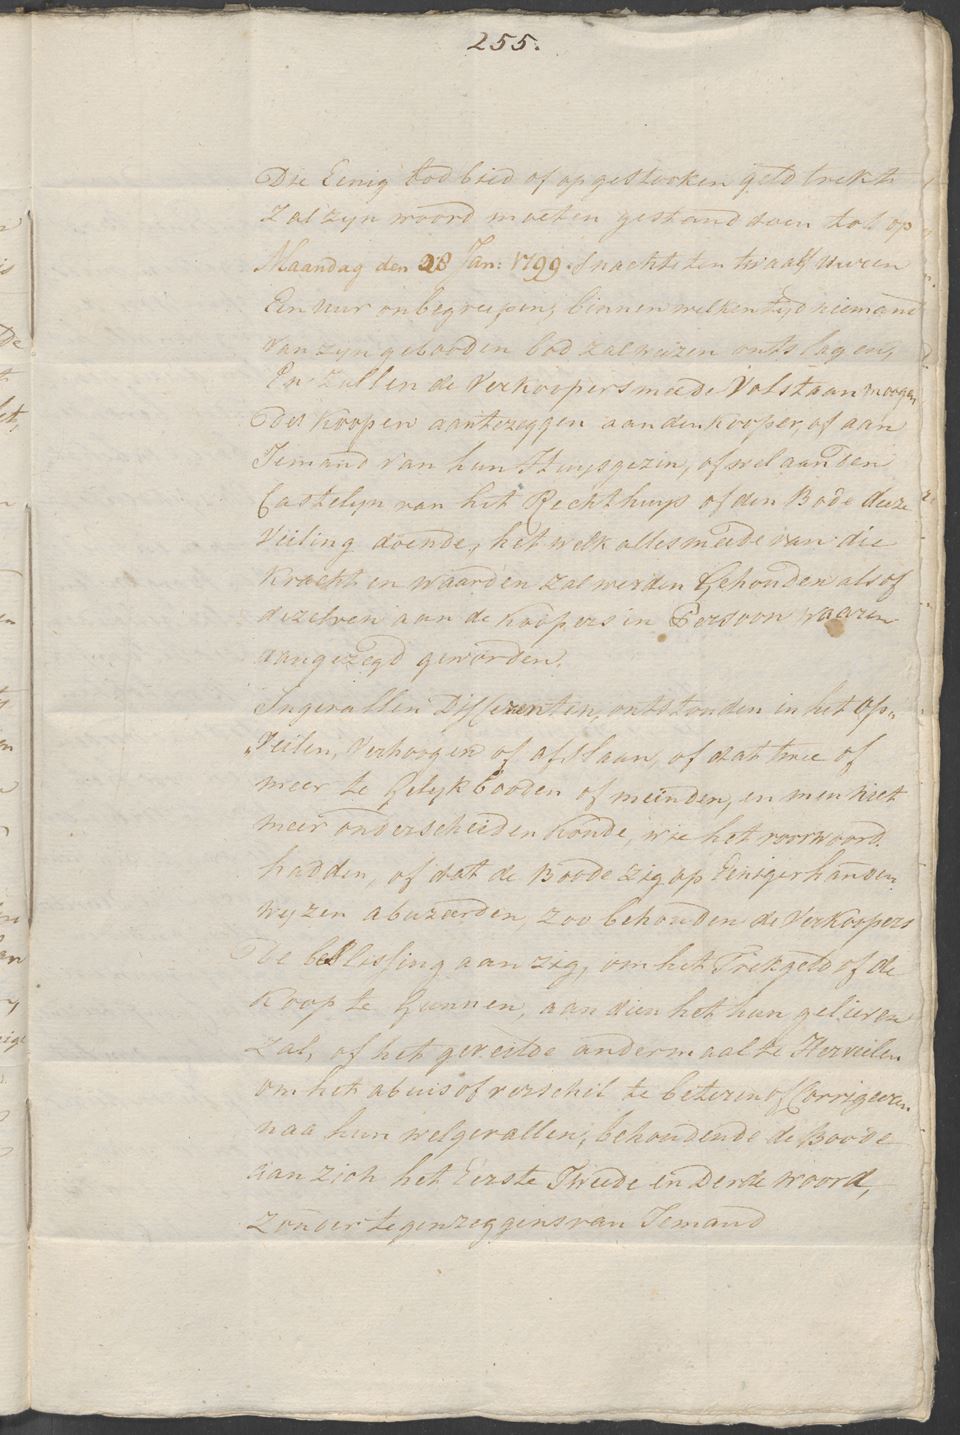 255.
Die Eenig bod bied of opgestooken geld trekt
Zal zijn woord moeten gestand doen tot op
Maandag den 28 Jan: 1799. Snachts ten twaalf Uuren
Een uur onbegreepen, binnen welken tyd niemand
van zyn gebooden bod zal weezen ontslagen,
En zullen de Verkoopers meede Volstaan moogen
Det Koopen aantezeggen aan den Kooper, of aan
Iemand van hun Huysgezin, of wel aan den
Castelyn van het Rechthuys of den Bode deeze
Veiling doende, het welk alles meede van die
kracht en waarden zal werden gehouden als of
dezelven aan de Koopers in Persoon waaren
aangezegd geworden.
Ingevallen Differenten, ontstonden in het Op„
„Veilen, Verhoogen of afslaan, of dat twee of
meer te gelyk booden of meinden, en men niet
meer onderscheiden konde, wie het voorwoord
hadden, of dat de Boode zig op Eenigerhanden
wyzen abuzeerden, zoo behouden de Verkoopers
De beslissing aan zig, om het Trekgeld of de
Koop te Gunnen, aan dien het hun gelieven
zal, of het geveilde andermaal te Herveilen
om het abuis of verschil te beteren of Corrigeeren
naa hun welgevallen, behoudende de Boode
aan zich het Eerste Tweede en Derde woord,
Zonder tegenzeggens van Iemand